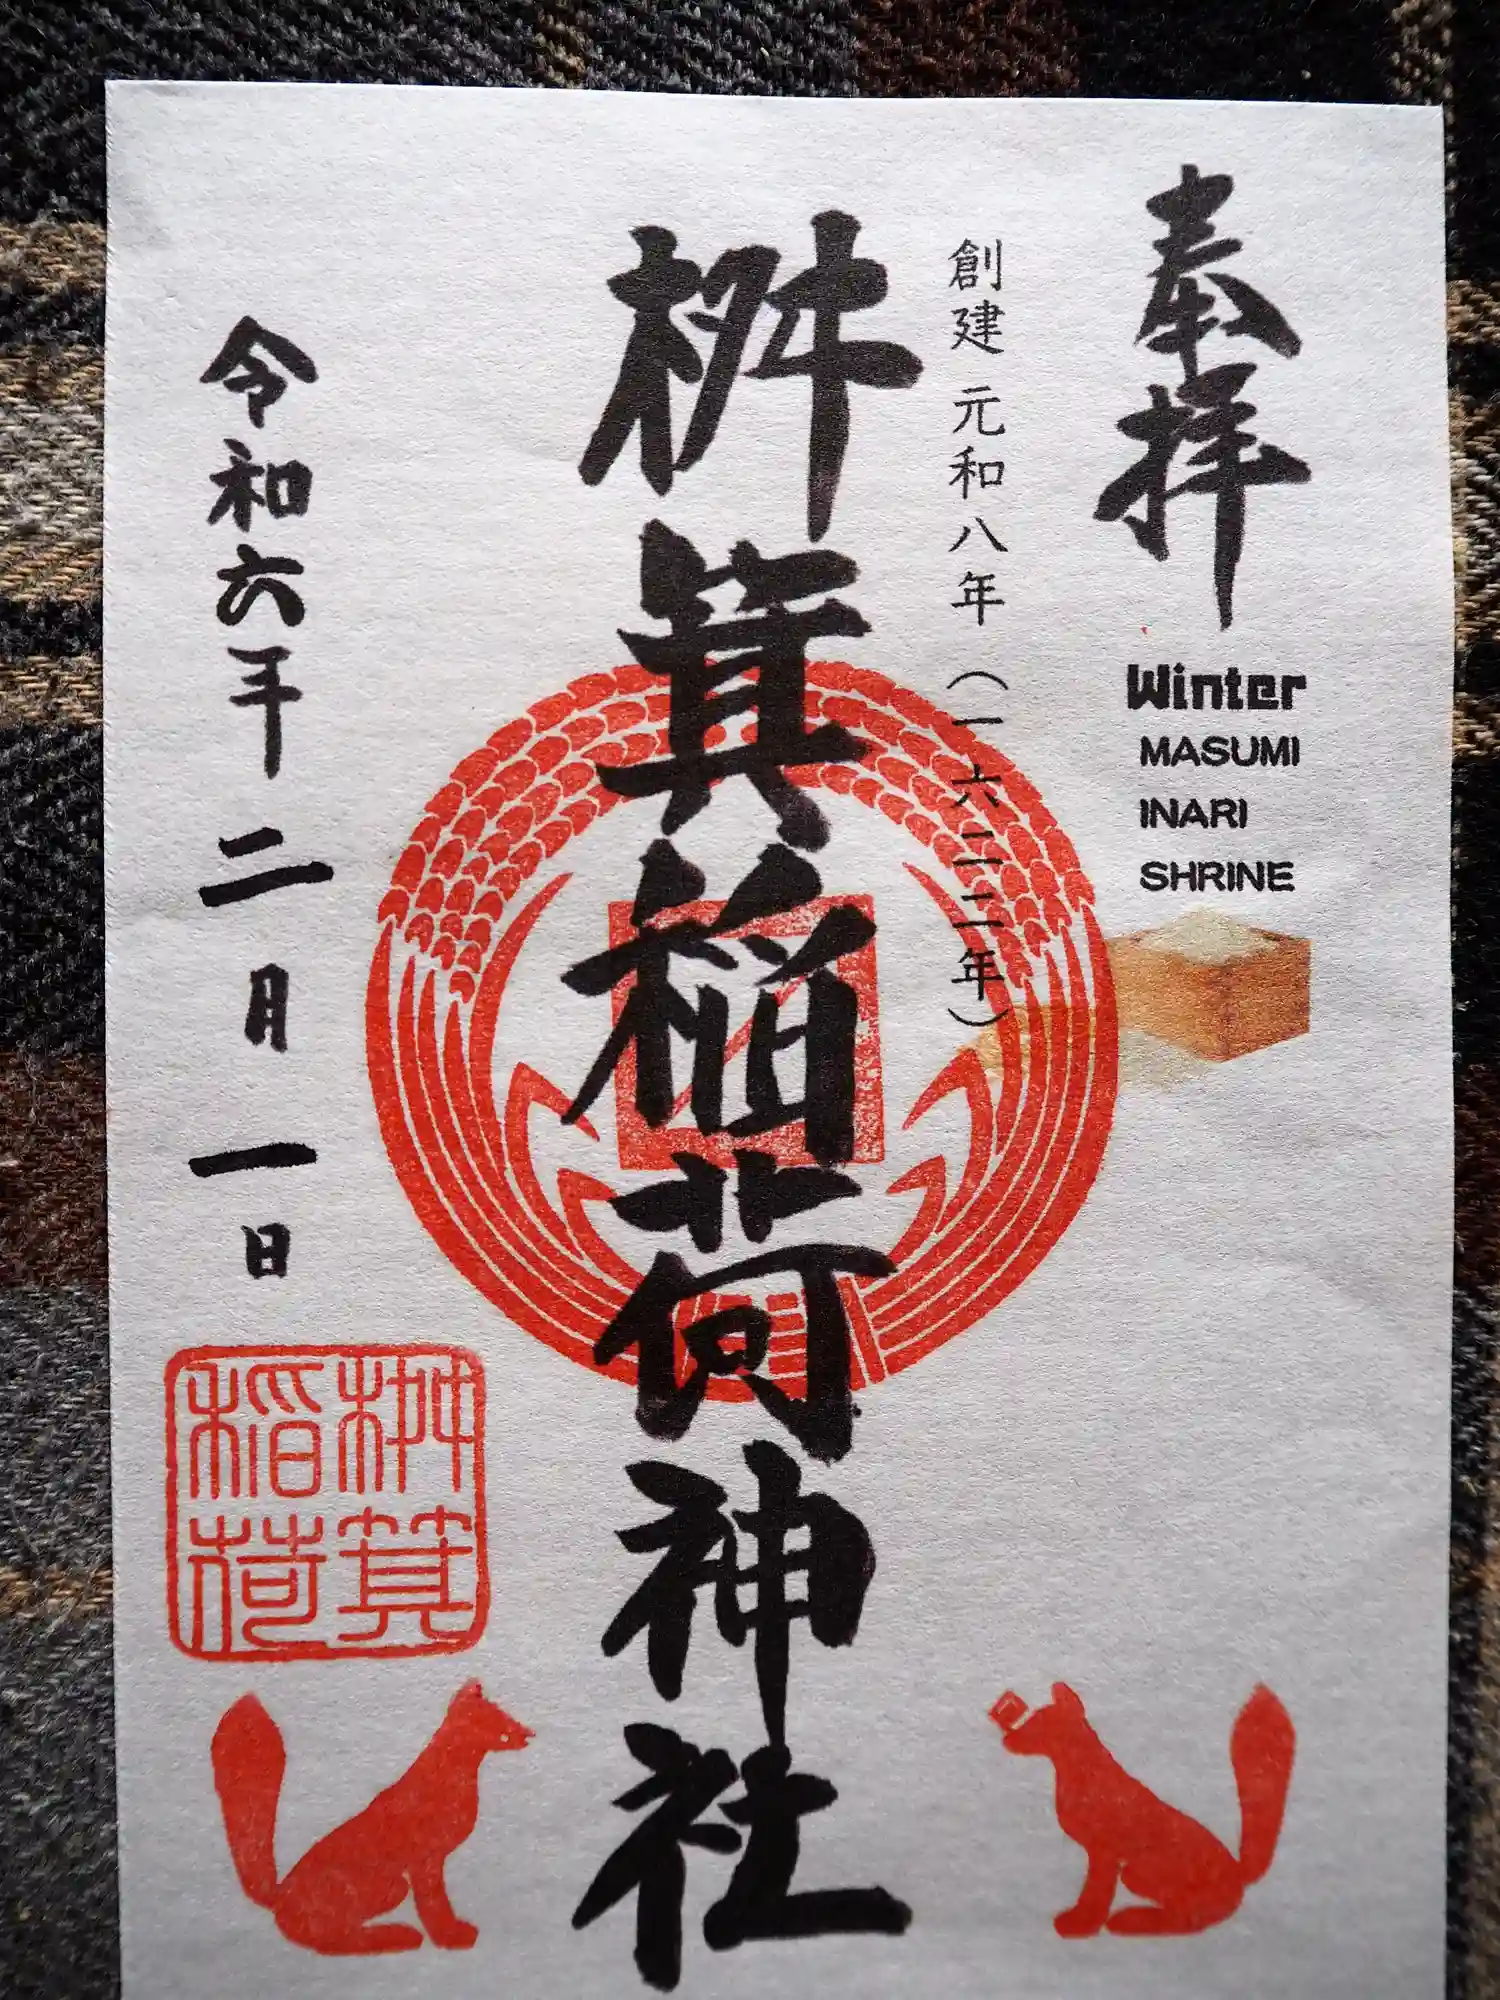 奉拝
Winter
MASUMI
INARI
SHRINE
創建 元和八年（一六二二年）
桝箕稲荷神社
令和六年二月一日
桝箕
稲荷